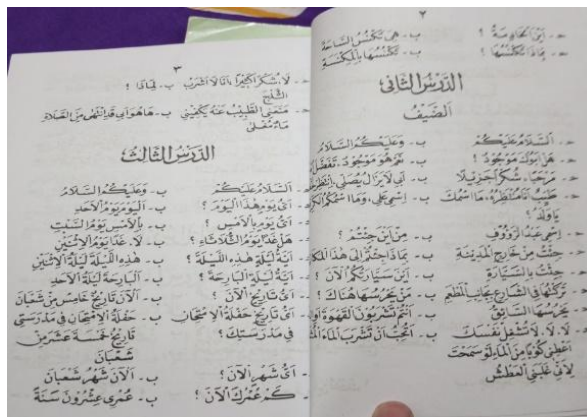 ٢
- أَيْنَ الْخَادِمَةُ ؟ ب - هِيَ تَكْنُسُ السَّاحَةَ
- بِمَاذَا تَكْنُسُهَا ؟ ب - تَكْنُسُهَا بِالْمِكْنَسَةِ
الدَّرْسُ الثَّانِي
الضَّيْفُ
- السَّلَامُ عَلَيْكُمْ ب - وَعَلَيْكُمُ السَّلَامُ
- هَلْ أَبُوكَ مَوْجُودٌ ؟ ب - نَعَمْ هُوَ مَوْجُودٌ، تَفَضَّلْ
- مَرْحَبًا، شُكْرًا جَزِيلًا ب - أَبِي لَا يَزَالُ يُصَلِّي،
- طَيِّبٌ أَنَا مُنْتَظِرُهُ، مَا اسْمُكَ ب - اِسْمِي عَلِي، وَمَا اسْمُكُمُ
يَا وَلَدُ ؟
- اِسْمِي عَبْدُ الرَّؤُوفِ ب - مِنْ أَيْنَ جِئْتُمْ ؟
- جِئْتُ مِنْ خَارِجِ الْمَدِينَةِ ب - بِمَاذَا جِئْتُمْ إِلَى هٰذَا
- جِئْتُ بِالسَّيَّارَةِ ب - أَيْنَ سَيَّارَتُكُمُ الْآنَ ؟
- تَرَكْتُهَا فِي الشَّارِعِ بِجَانِبِ الْمَطْعَمِ ب - مَنْ يَحْرُسُهَا هُنَاكَ ؟
- يَحْرُسُهَا السَّائِقُ ب - أَنْتُمْ تَشْرَبُونَ الْقَهْوَةَ
- لَا، لَا، لَا تَشْغَلْ نَفْسَكَ ب - أَتُحِبُّ أَنْ تَشْرَبَ الْمَاءَ
أَعْطِنِي كُوبًا مِنَ الْمَاءِ لَوْ سَمَحْتَ
لِأَنِّي غَلَبَنِي الْعَطَشُ
٣
- لَا، شُكْرًا كَثِيرًا، أَنَا لَا أَشْرَبُ ب - لِمَاذَا ؟
الثَّلْجَ
- مَنَعَنِي الطَّبِيبُ عَنْهُ يَكْفِينِي ب - هَا هُوَ أَبِي قَدِ انْتَهَى مِنَ الصَّلَاةِ
مَاءٌ مُغْلًى
الدَّرْسُ الثَّالِثُ
- السَّلَامُ عَلَيْكُمْ ب - وَعَلَيْكُمُ السَّلَامُ
- أَيُّ يَوْمٍ هٰذَا الْيَوْمُ ؟ ب - اَلْيَوْمُ يَوْمُ الْأَحَدِ
- أَيُّ يَوْمٍ بِالْأَمْسِ ؟ ب - بِالْأَمْسِ يَوْمُ السَّبْتِ
- هَلْ غَدًا يَوْمُ الثُّلَاثَاءِ ؟ ب - لَا، غَدًا يَوْمُ الْاِثْنَيْنِ
- أَيَّةُ لَيْلَةٍ هٰذِهِ اللَّيْلَةُ ؟ ب - هٰذِهِ اللَّيْلَةُ لَيْلَةُ الْاِثْنَيْنِ
- أَيَّةُ لَيْلَةٍ الْبَارِحَةُ ؟ ب - اَلْبَارِحَةُ لَيْلَةُ الْأَحَدِ
- أَيُّ تَارِيخٍ الْآنَ ؟ ب - اَلْآنَ تَارِيخُ خَامِسٍ مِنْ شَعْبَانَ
- أَيُّ تَارِيخٍ حَفْلَةُ الْاِمْتِحَانِ ب - حَفْلَةُ الْاِمْتِحَانِ فِي مَدْرَسَتِي
فِي مَدْرَسَتِكَ ؟ تَارِيخُ خَمْسَةَ عَشَرَ مِنْ
شَعْبَانَ
- أَيُّ شَهْرٍ الْآنَ ؟ ب - اَلْآنَ شَهْرُ شَعْبَانَ
- كَمْ عُمْرُكَ الْآنَ ؟ ب - عُمْرِي عِشْرُونَ سَنَةً